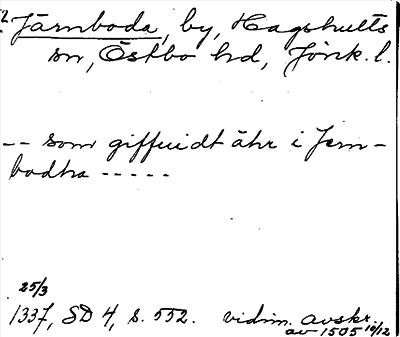 Järnboda, by, Hagshults
sn, Östbo hd, Jönk. l.
-- som giffuidt ähr i Jern-
bodha -----
25/3
1337, SD 4, s. 552. vidim. avskr.
av 1505 10/12